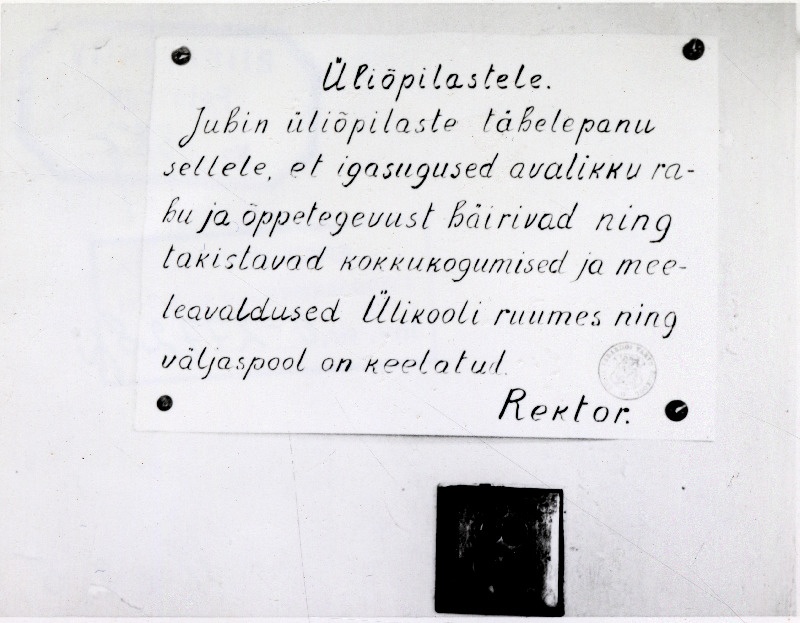 Üliõpilastele.
Juhin üliõpilaste tähelepanu
sellele, et igasugused avalikku ra-
hu ja õppetegevust häirivad ning
takistavad kokkukogumised ja mee-
leavaldused Ülikooli ruumes ning
väljaspool on keelatud.
Rektor.